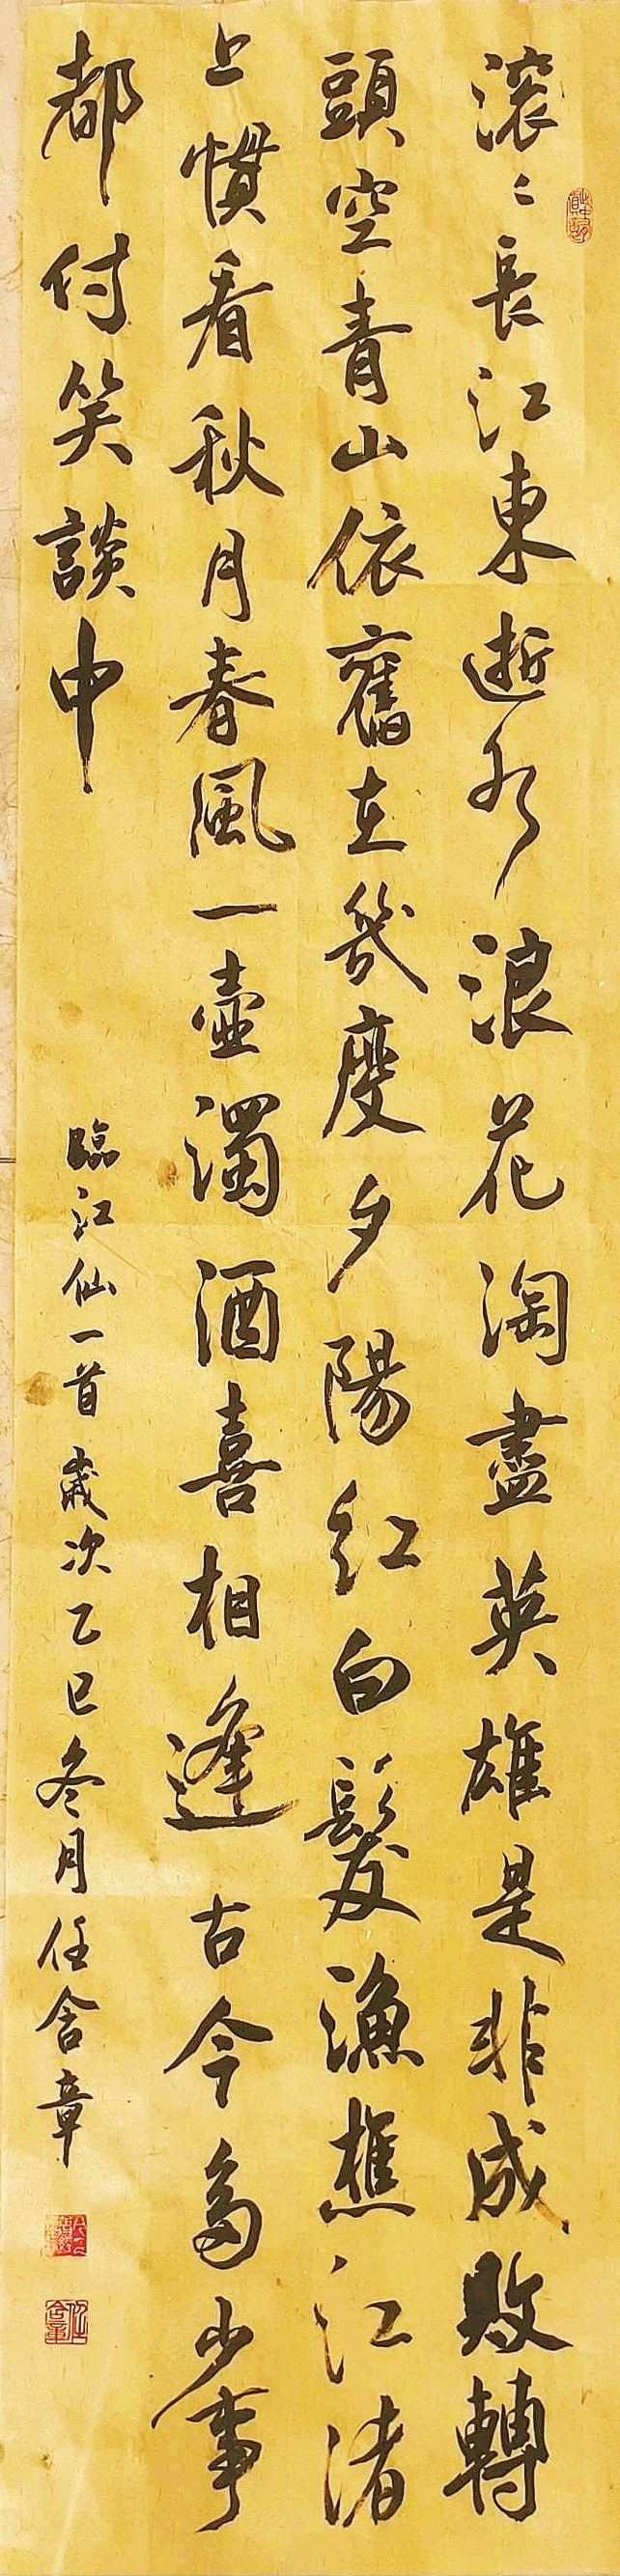 滚〻長江東逝水浪花淘盡英雄是非成敗轉
頭空青山依舊在幾度夕陽紅白髮漁樵江渚
上慣看秋月春風一壺濁酒喜相逢古今多少事
都付笑談中
臨江仙一首歲次乙巳冬月任含章